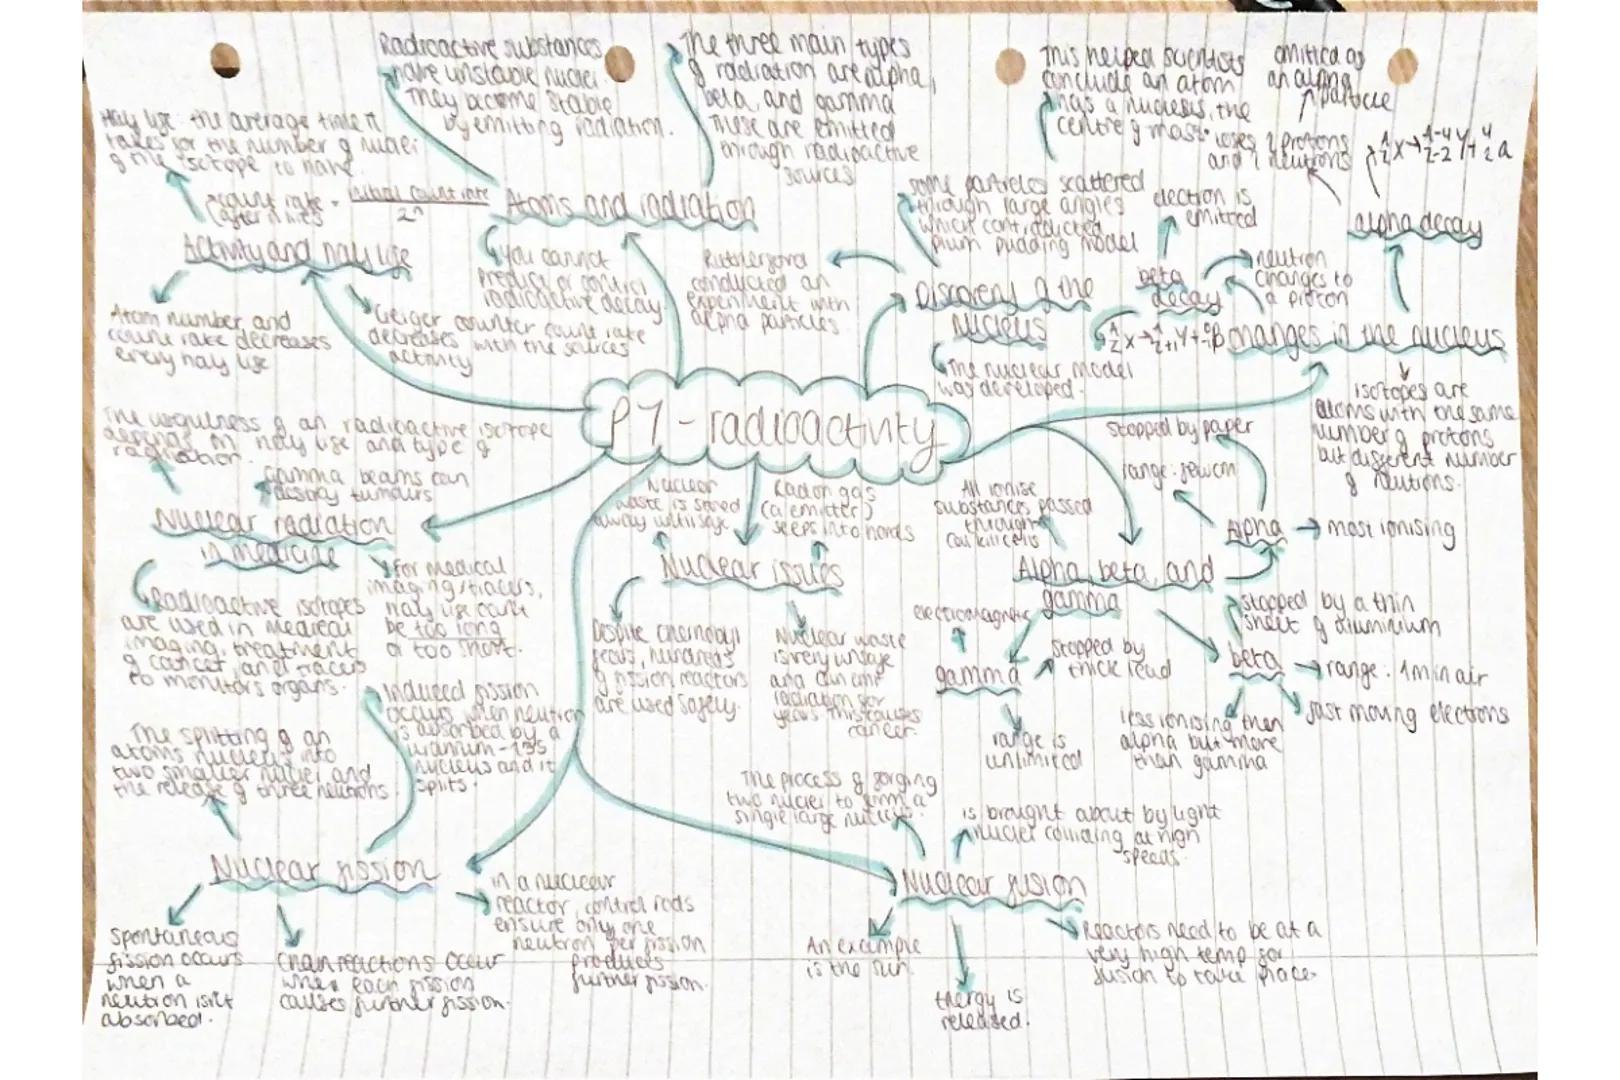 Radioactive substances
have unstable nuclei.
They become stable
by emitting radiation.
The three main types
of radiation are alpha,
beta, and gamma
These are emitted
through radioactive
sources
This helped scientists
conclude an atom
has a nucleus, the
centre of mass.
emitted as
an alpha
particle
loses 2 protons
and 2 neutrons
A/Z X → A-4/Z-2 Y + 4/2 α
Half life: the average time it
takes for the number of nuclei
of the isotope to halve.
count rate = initial count rate
after n lives 2ⁿ
Atoms and radiation
some particles scattered
through large angles
which contradicted
plum pudding model
electron is
emitted
alpha decay
Activity and half life
you cannot
predict or control
radioactive decay
Rutherford
conducted an
experiment with
alpha particles.
Discovery of the
nucleus
beta
decay
neutron
changes to
a proton
Atom number and
count rate decreases
every half life
Geiger counter count rate
decreases with the sources
activity
A/Z X → A/Z+1 Y + 0/-1 β
changes in the nucleus
The nuclear model
was developed.
isotopes are
atoms with the same
number of protons
but different number
of neutrons.
P7 - radioactivity
The usefulness of an radioactive isotope
depends on half life and type of
radiation.
gamma beams can
destroy tumours
Nuclear radiation
in medicine
Radioactive isotopes
are used in medical
imaging, treatment
of cancer, and tracers
to monitors organs.
for medical
imaging/tracers,
half life can't
be too long
or too short.
Nuclear
waste is stored
away until safe
Radon gas
(α emitter)
seeps into homes
Nuclear issues
Despite chernobyl
fears, hundreds
of fission reactors
are used safely.
Nuclear waste
is very unsafe
and can emit
radiation for
years this causes
cancer.
All ionise
substances passed
through
can kill cells
stopped by paper
range: few cm
Alpha
most ionising
Alpha, beta, and
gamma
electromagnetic
gamma
stopped by
thick lead
range is
unlimited
stopped by a thin
sheet of aluminium
beta
range: 1m in air
fast moving electrons
less ionising then
alpha but more
than gamma
The splitting of an
atoms nucleus into
two smaller nuclei and
the release of three neutrons.
induced fission
occurs when neutron
is absorbed by a
uranium-235
nucleus and it
splits.
Nuclear fission
in a nuclear
reactor, control rods
ensure only one
neutron per fission
produces
further fission.
Spontaneous
fission occurs
when a
neutron isn't
absorbed.
Chain reactions occur
when each fission
causes further fission.
The process of forging
two nuclei to form a
single large nucleus.
is brought about by light
nuclei colliding at high
speeds.
Nuclear fusion
An example
is the sun.
Energy is
released.
Reactors need to be at a
very high temp for
fusion to take place.